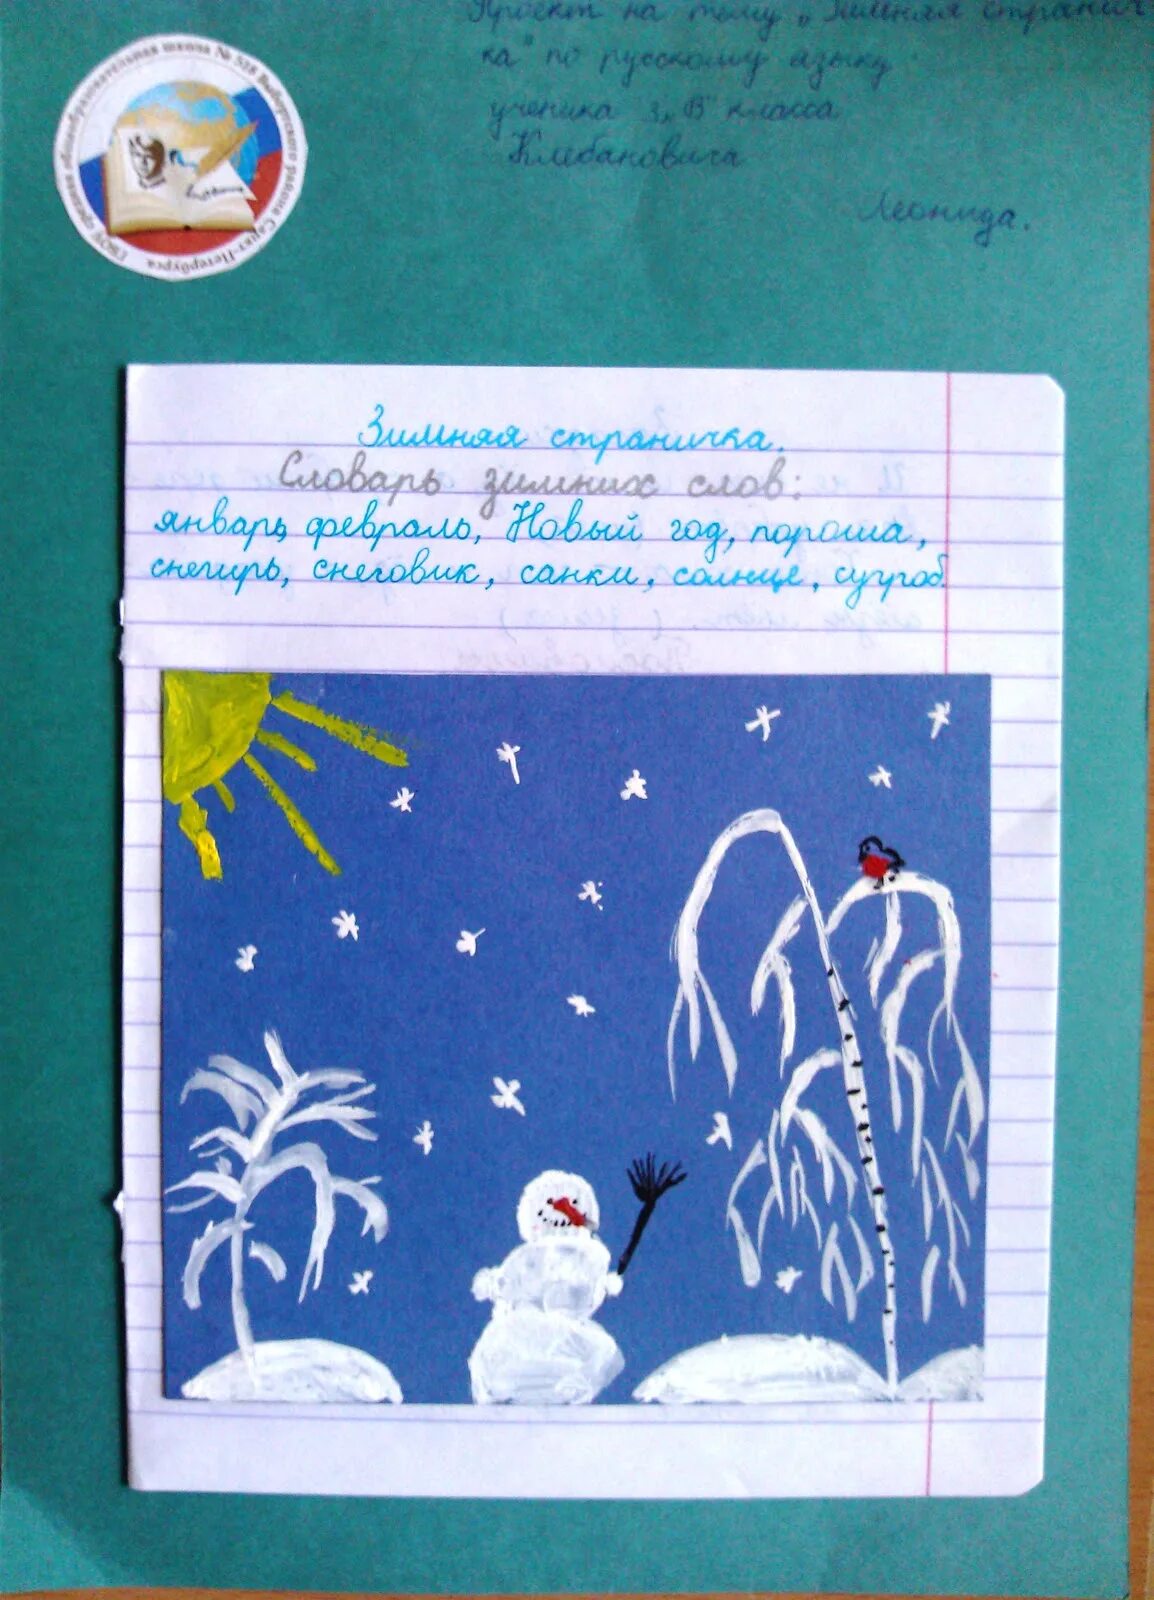 Проект на тему „Зимняя странич-
ка" по русскому языку
ученика 3 „В" класса
Клебановича
Леонида.
ГБОУ средняя общеобразовательная школа № 518 Выборгского района Санкт-Петербурга
Зимняя страничка.
Словарь зимних слов:
январь, февраль, Новый год, пороша,
снегирь, снеговик, санки, солнце, сугроб.